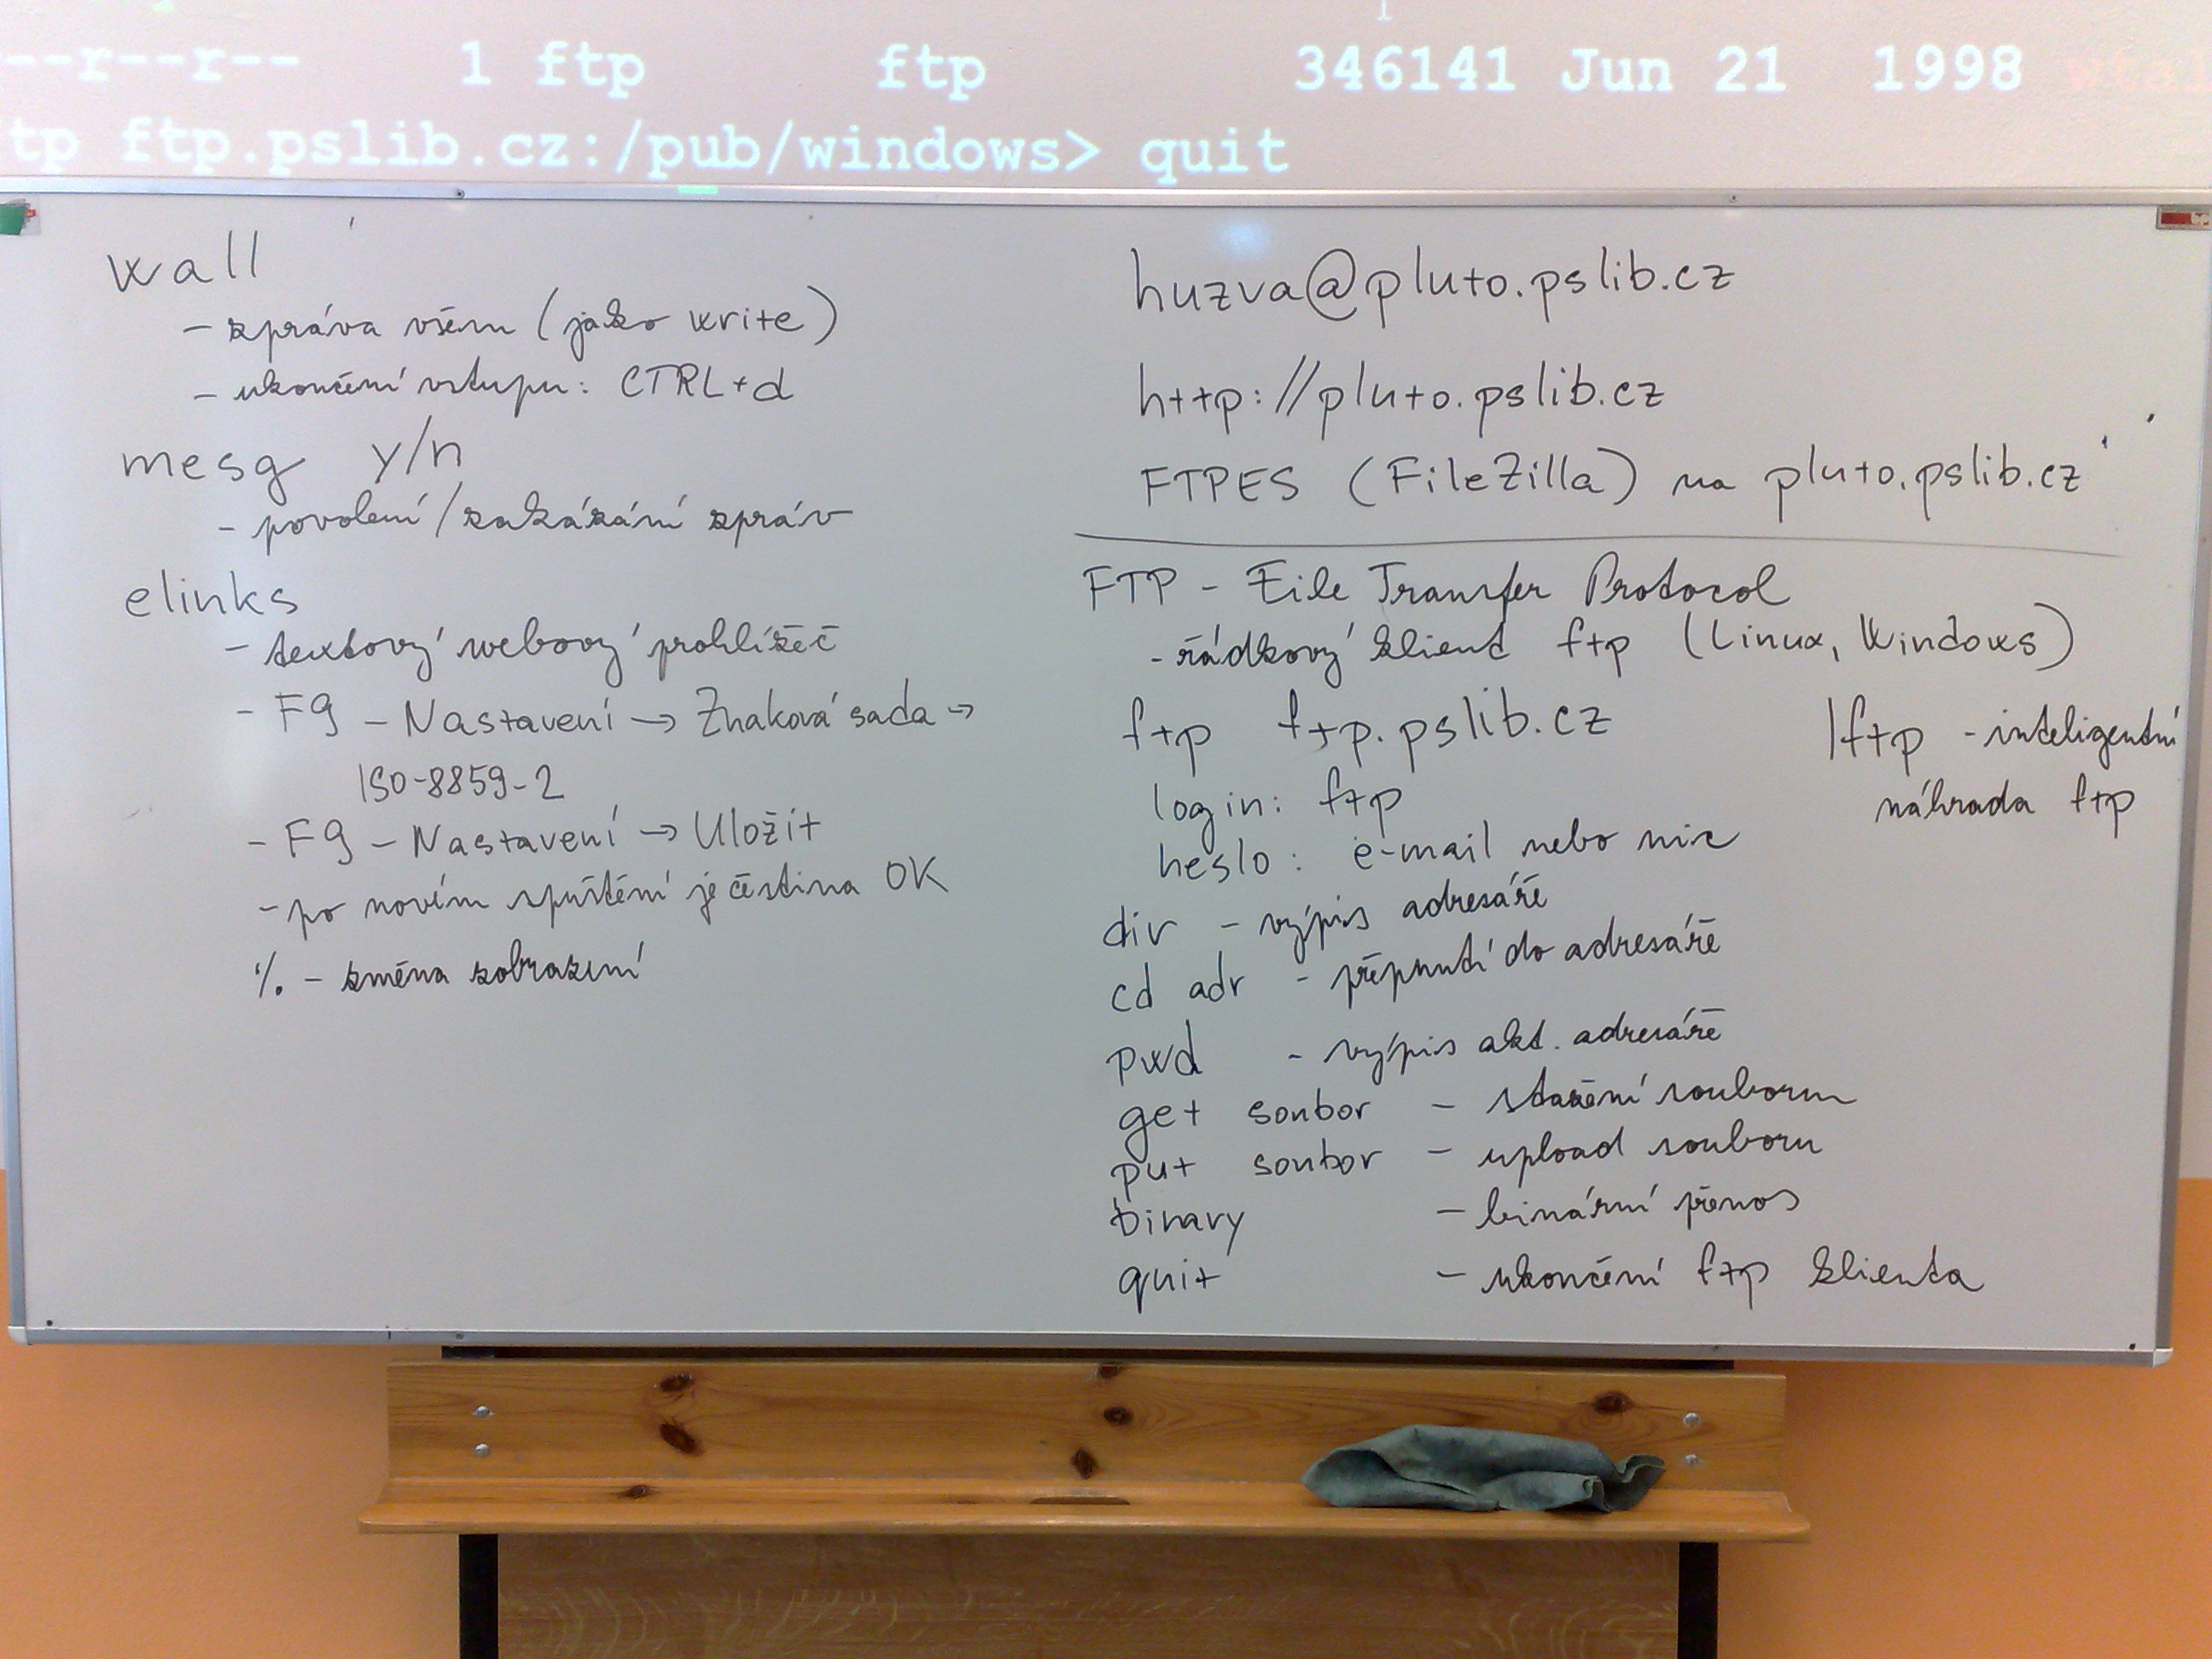 --r--r-- 1 ftp ftp 346141 Jun 21 1998
tp ftp.pslib.cz:/pub/windows> quit
wall
- zpráva všem (jako write)
- ukončení vstupu: CTRL+d
mesg y/n
- povolení/zakázání zpráv
elinks
- textový webový prohlížeč
- F9 - Nastavení → Znaková sada →
ISO-8859-2
- F9 - Nastavení → Uložit
- po novém spuštění je čeština OK
% - změna zobrazení
huzva@pluto.pslib.cz
http://pluto.pslib.cz
FTPES (FileZilla) na pluto.pslib.cz
FTP - File Transfer Protocol
- řádkový klient ftp (Linux, Windows)
ftp ftp.pslib.cz
login: ftp
heslo: e-mail nebo nic
lftp - inteligentní
náhrada ftp
dir - výpis adresáře
cd adr - přepnutí do adresáře
pwd - výpis akt. adresáře
get soubor - stažení souboru
put soubor - upload souboru
binary - binární přenos
quit - ukončení ftp klienta